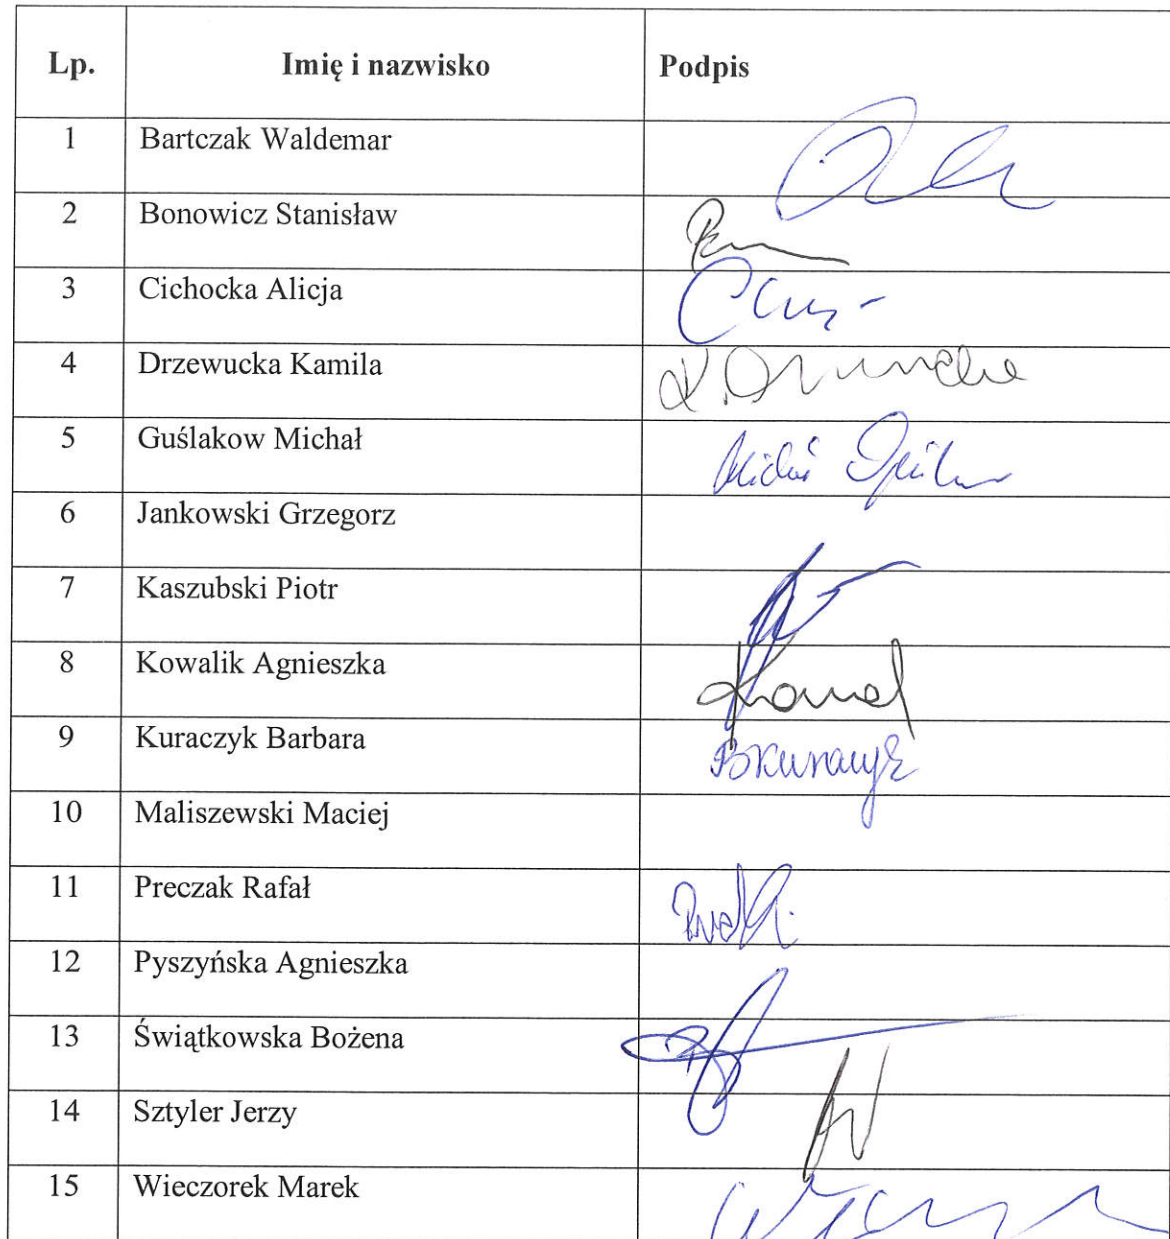 Lp. Imię i nazwisko Podpis
1 Bartczak Waldemar
2 Bonowicz Stanisław
3 Cichocka Alicja
4 Drzewucka Kamila
5 Guślakow Michał
6 Jankowski Grzegorz
7 Kaszubski Piotr
8 Kowalik Agnieszka
9 Kuraczyk Barbara
10 Maliszewski Maciej
11 Preczak Rafał
12 Pyszyńska Agnieszka
13 Świątkowska Bożena
14 Sztyler Jerzy
15 Wieczorek Marek